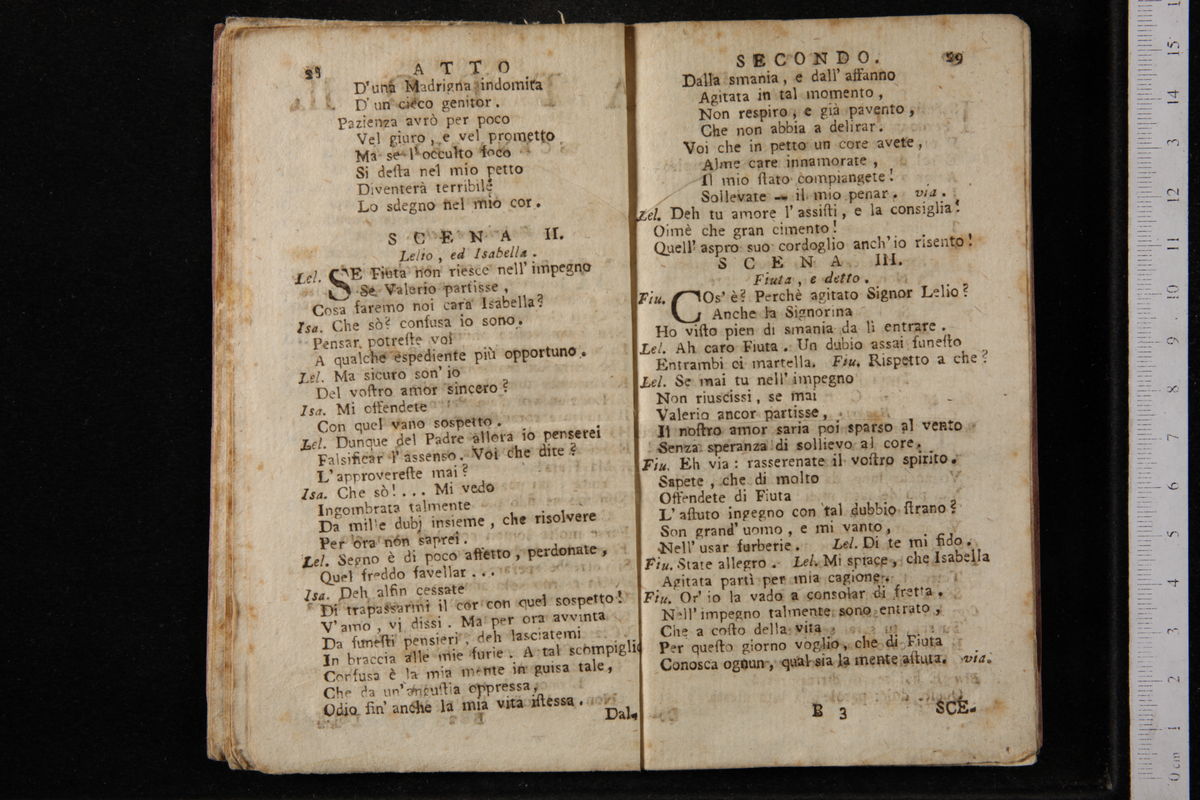 28 ATTO
D'una Madrigna indomita
D'un cieco genitor.
Pazienza avrò per poco
Vel giuro, e vel prometto
Ma se l'occulto foco
Si deſta nel mio petto
Diventerà terribile
Lo sdegno nel mio cor.
SCENA II.
Lelio, ed Isabella.
Lel. SE Fiuta non riesce nell' impegno
Se Valerio partisse,
Cosa faremo noi cara Isabella?
Isa. Che sò? confusa io sono.
Pensar potreſte voi
A qualche espediente più opportuno.
Lel. Ma sicuro son' io
Del voſtro amor sincero?
Isa. Mi offendete
Con quel vano sospetto.
Lel. Dunque del Padre allora io penserei
Falsificar l'assenso. Voi che dite?
L'approvereſte mai?
Isa. Che sò!... Mi vedo
Ingombrata talmente
Da mille dubj insieme, che risolvere
Per ora non saprei.
Lel. Segno è di poco affetto, perdonate,
Quel freddo favellar...
Isa. Deh alfin cessate
Di trapassarmi il cor con quel sospetto!
V'amo, vi dissi. Ma per ora avvinta
Da funeſti pensieri, deh lasciatemi
In braccia alle mie furie. A tal scompiglio
Confusa è la mia mente in guisa tale,
Che da un'anguſtia oppressa,
Odio fin' anche la mia vita iſtessa.
Dal-
SECONDO. 29
Dalla smania, e dall' affanno
Agitata in tal momento,
Non respiro, e già pavento,
Che non abbia a delirar.
Voi che in petto un core avete,
Alme care innamorate,
Il mio ſtato compiangete!
Sollevate - il mio penar. via.
Lel. Deh tu amore l'assiſti, e la consiglia!
Oimè che gran cimento!
Quell' aspro suo cordoglio anch'io risento!
SCENA III.
Fiuta, e detto.
Fiu. COs' è? Perchè agitato Signor Lelio?
Anche la Signorina
Ho viſto pien di smania da lì entrare.
Lel. Ah caro Fiuta. Un dubio assai funeſto
Entrambi ci martella. Fiu. Rispetto a che?
Lel. Se mai tu nell' impegno
Non riuscissi, se mai
Valerio ancor partisse,
Il noſtro amor saria poi sparso al vento
Senza speranza di sollievo al core.
Fiu. Eh via: rasserenate il voſtro spirito.
Sapete, che di molto
Offendete di Fiuta
L'aſtuto ingegno con tal dubbio ſtrano?
Son grand' uomo, e mi vanto,
Nell' usar furberie. Lel. Di te mi fido.
Fiu. State allegro. Lel. Mi spiace, che Isabella
Agitata partì per mia cagione.
Fiu. Or' io la vado a consolar di fretta.
Nell' impegno talmente sono entrato,
Che a coſto della vita
Per queſto giorno voglio, che di Fiuta
Conosca ognun, qual sia la mente aſtuta. via.
B 3 SCE-